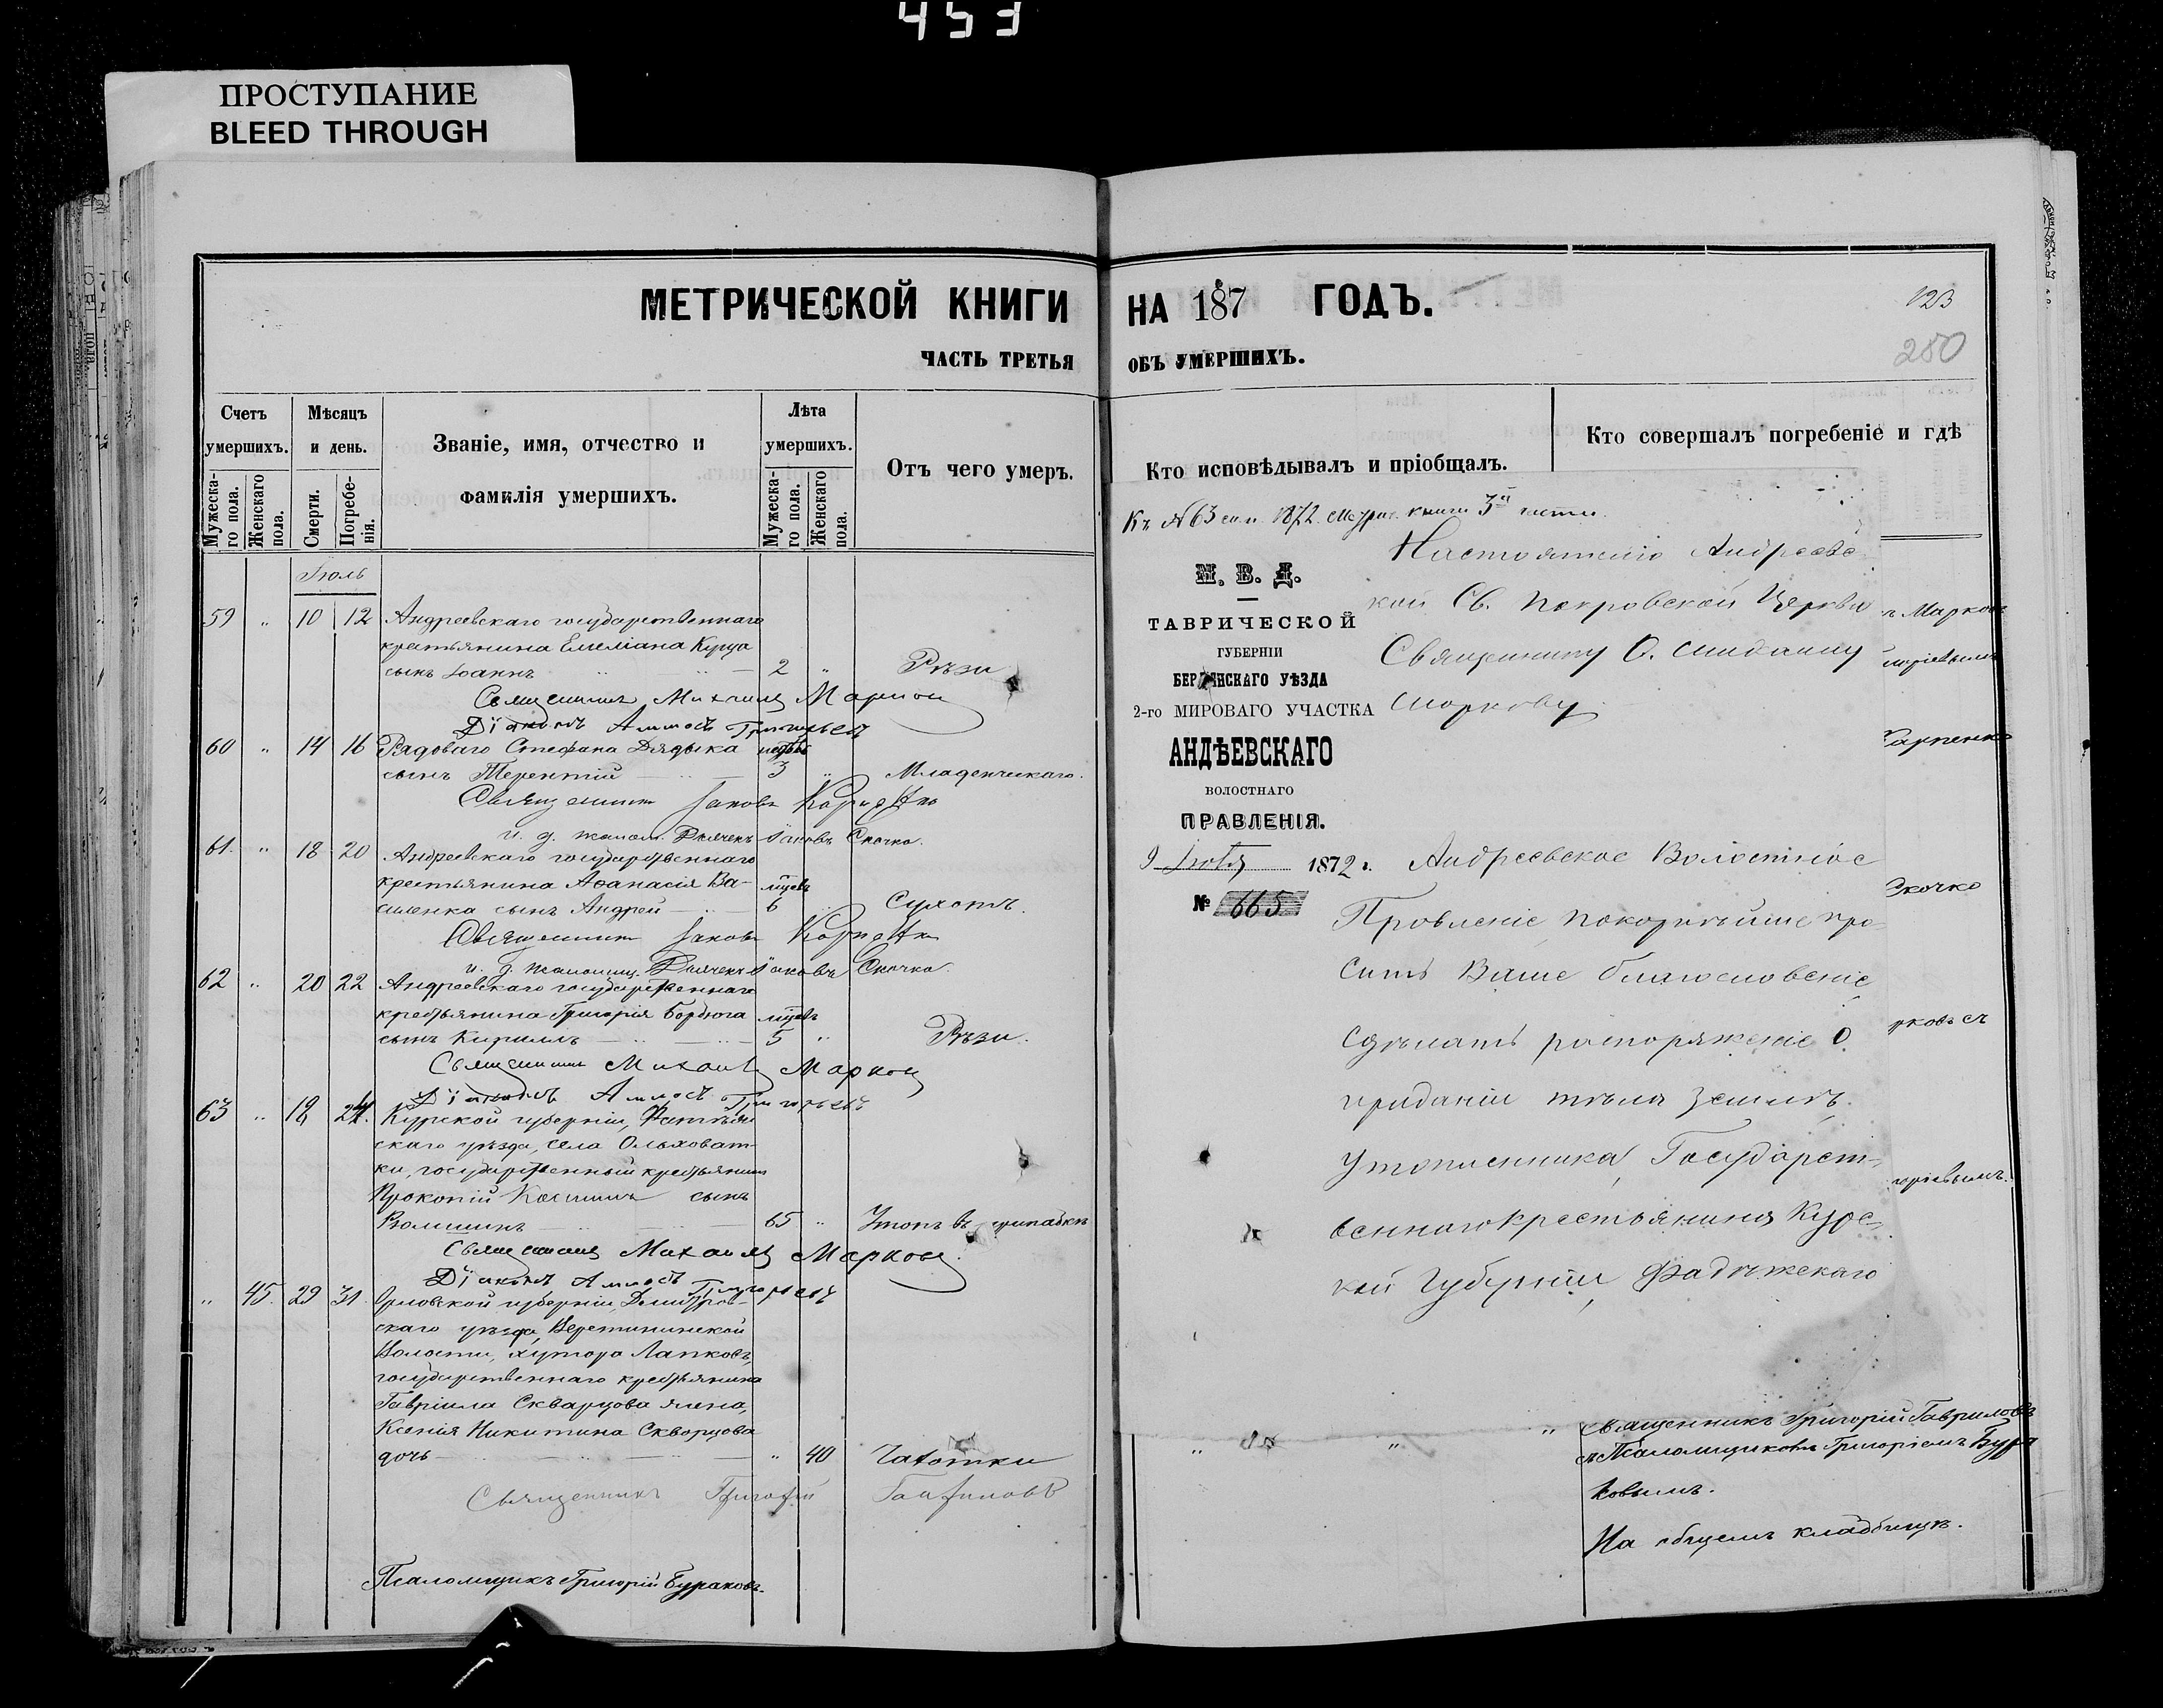 453
ПРОСТУПАНИЕ
BLEED THROUGH
МЕТРИЧЕСКОЙ КНИГИ
ЧАСТЬ ТРЕТЬЯ
Счетъ умершихъ.
Мужескаго пола.
Женскаго пола.
Мѣсяцъ и день.
Смерти.
Погребенія.
Званіе, имя, отчество и
фамилія умершихъ.
Лѣта умершихъ.
Мужескаго пола.
Женскаго пола.
Отъ чего умеръ.
Іюль
59 " 10 12 Андреевскаго государственнаго
крестьянина Емеліана
сынъ Іоаннъ 2 " Рѣзи
Священникъ Михаилъ Марков
Діаконъ Аммосъ Григорьевъ
60 " 14 16 Рядоваго Стефана недѣль
сынъ Терентій 3 " Младенческаго.
Священник Іаковъ
и. д. псалом. Іаковъ Скочко.
61. " 18 20 Андреевскаго государственнаго
крестьянина Аѳанасія Ва- мѣсяц
силенка сынъ Андрей 6 " Сухотъ.
Священник Іаковъ
и. д. псаломщ. Іаковъ Скочко.
62 " 20 22 Андреевскаго государственнаго
крестьянина Григорія Бордюга мѣсяц
сынъ Кириллъ 5 " Рѣзи.
Священник Михаилъ Марков
Діаконъ Аммосъ Григорьевъ
63 " 18 24. Курской губерніи,
скаго уѣзда, села Ольховат-
ки, государственный крестьянин
Прокопій сынъ
65 " Утопъ въ припадкѣ
Священник Михаилъ Марков.
Діаконъ Аммосъ Григорьевъ
" 45. 29 31. Орловской губерніи, Дмитров-
скаго уѣзда, Веретининской
Волости, хутора Лапковъ,
государственнаго крестьянина
Гавріила Скварцова жена,
Ксенія Никитина Скворцова
дочь " 40 Чахотки
Священникъ Григорій Гавриловъ
Псаломщикъ Григорій Бураковъ.
НА 187 ГОДЪ.
ОБЪ УМЕРШИХЪ.
123
280
Кто исповѣдывалъ и пріобщалъ.
Кто совершалъ погребеніе и гдѣ
Къ №63 1872 Метрич. книги 3й части.
М. В. Д.
ТАВРИЧЕСКОЙ
ГУБЕРНІИ
БЕРДЯНСКАГО УѢЗДА
2-го МИРОВАГО УЧАСТКА
АНДѢЕВСКАГО
ВОЛОСТНАГО
ПРАВЛЕНІЯ.
9 Іюля 1872 г.
№ 665
Настоятелю Андреевс
кой Св. Покровской Церкви
Священнику О. Михаилу
Маркову
Андреевское Волостное
Правленіе покорнѣйше про-
ситъ Ваше благословеніе
сдѣлать распоряженіе о
приданіи тѣла землѣ.
Утопленника, Государст-
веннаго крестьянина Курс-
кой Губерніи, Фадѣжскаго
ъ Марков
Карпенко
Скочко
рковъ съ
горіевымъ.
" " " " Священникъ Григорій Гавриловъ
съ Псаломщикомъ Григоріемъ Бура
ковымъ.
На общемъ кладбищѣ.